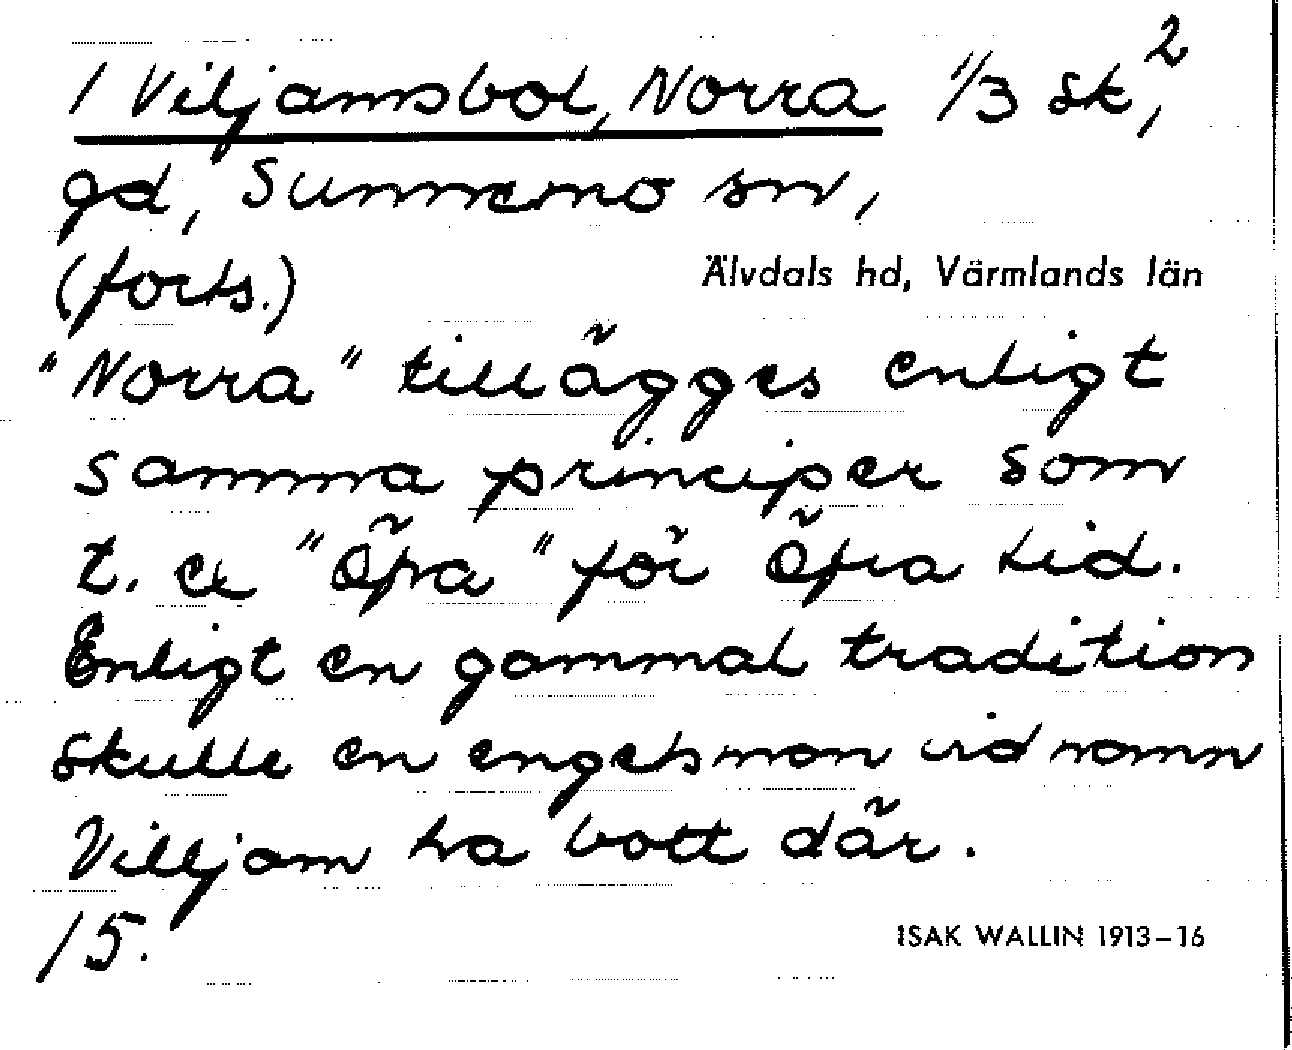 1 Viljamsbol, Norra 1/3 sk,²
gd, Sunnemo sn,
(forts.)
Älvdals hd, Värmlands län
"Norra" tillägges enligt
samma principer som
t. ex "Öfra" för Öfra Lid.
Enligt en gammal tradition
skulle en engelsman vid namn
Villjam ha bott där.
15.
ISAK WALLIN 1913–16